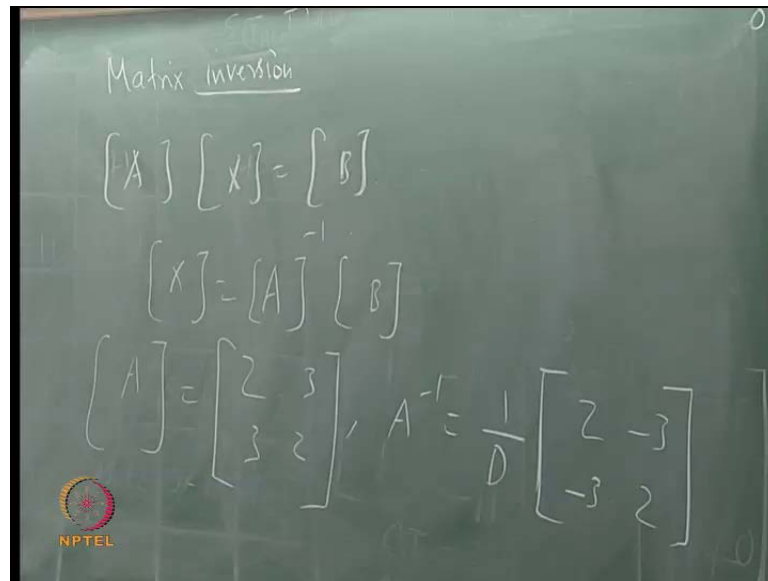 Matrix inversion
[A] [X] = [B]
[X] = [A]⁻¹ [B]
[A] = [2 3; 3 2], A⁻¹ = 1/D [2 -3; -3 2]
NPTEL